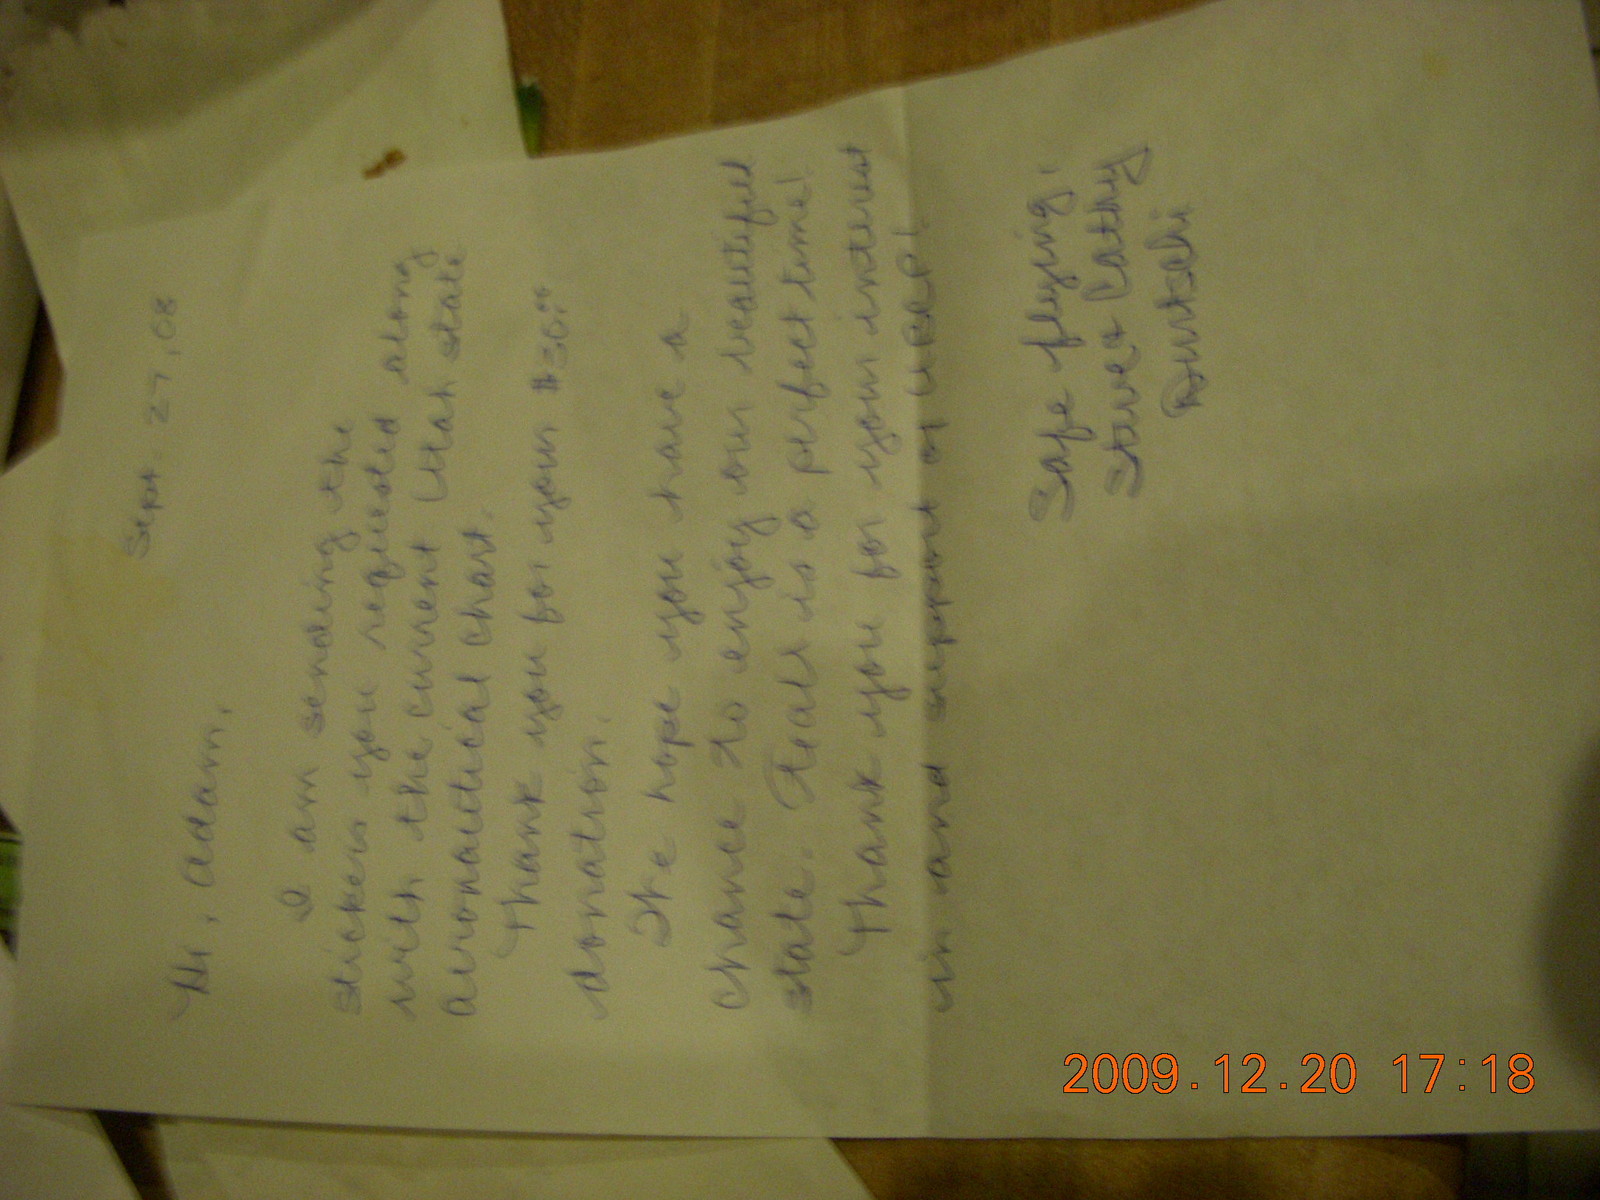 Sept. 27, 08
Hi, Adam,
I am sending the
stickers you requested along
with the current Utah state
aeronautical chart.
Thank you for your $30.00
donation.
We hope you have a
chance to enjoy our beautiful
state. Fall is a perfect time!
Thank you for your interest
in and support of
Safe flying,
Steve & Cathy
Durtschi
2009.12.20 17:18